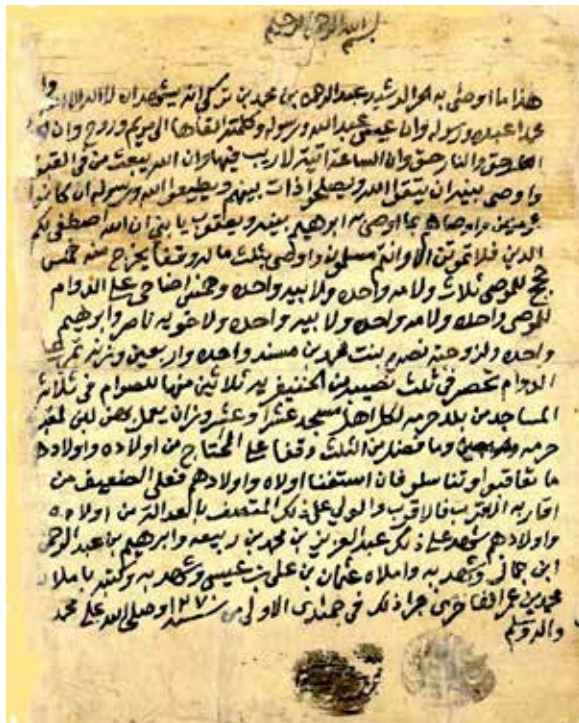 بسم الله الرحمن الرحيم
هذا ما اوصى به الحر الرشيد عبد الرحمن بن محمد بن تركي انه يشهد ان لا اله الا الله وا
محمدا عبده ورسوله وان عيسى عبد الله ورسوله وكلمته القاها الى مريم وروح
حق والنار حق وان الساعة اتية لا ريب فيها وان الله يبعث من في القبور
واوصى بنيه ان يتقوا الله ويصلحوا ذات بينهم ويطيعوا الله ورسوله ان كانوا
مومنين واوصاهم بما اوصى به ابرهيم بنيه ويعقوب يا بني ان الله اصطفى لكم
الدين فلا تموتن الا وانتم مسلمون واوصى بثلث ماله وقفا يخرج منه خمس
حجج للموصي ثلاث ولامه واحده ولابيه واحده وخمس اضاحي على الدوام
للموصي واحده ولامه واحده ولابيه واحده ولاخويه ناصر وابرهيم
واحده ولزوجته بنت محمد بن مسند واحده واربعين وزنة تمر على
الدوام في ثلث نصيبه من ثلاثين منها للصوام في ثلاثة
المساجد من بلد حرمه لكل اهل مسجد عشر وعشر وزان يعمل
حرمه وما فضل من الثلث وقفا على المحتاج من اولاده واولادهم
ما تعاقبوا وتناسلوا فان استغنا اولاده واولادهم فعلى الضعيف من
اقاربه الاقرب فالاقرب والولي على ذلك المتصف بالعدالة من اولاده
واولادهم شهد على ذلك عبد العزيز بن محمد بن ربيعه وابرهيم بن عبد الرحمن
ابن وشهد به واملاه عثمان بن علي بن عيسى وشهد به وكتبه باملاه
محمد بن عمر الفاخري جرا ذلك في جمادى الاولى من سنة ١٢٧٠ وصلى الله على محمد
واله وسلم